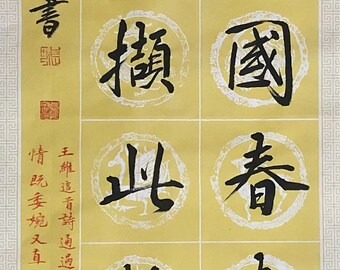 國春
擷此
王維這首詩通過
情既委婉又直
書